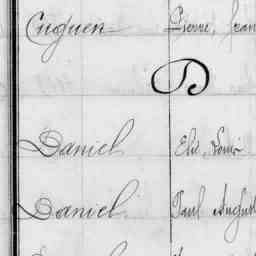 Cuguen Pierre, Fran
D
Daniel Elie, Louis
Daniel Paul August